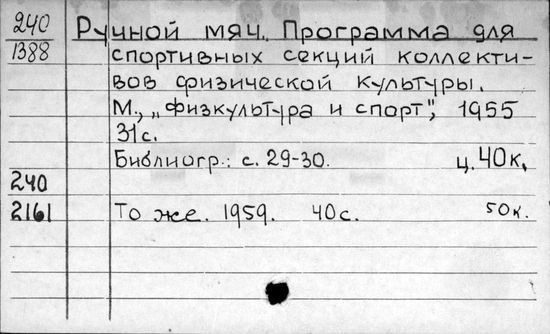 240 Ручной мяч. Программа для
1388 спортивных секций коллекти-
вов физической культуры.
М., „Физкультура и спорт", 1955
31с.
Библиогр.: с. 29-30. ц. 40к.
240
2161 То же. 1959. 40с. 50к.